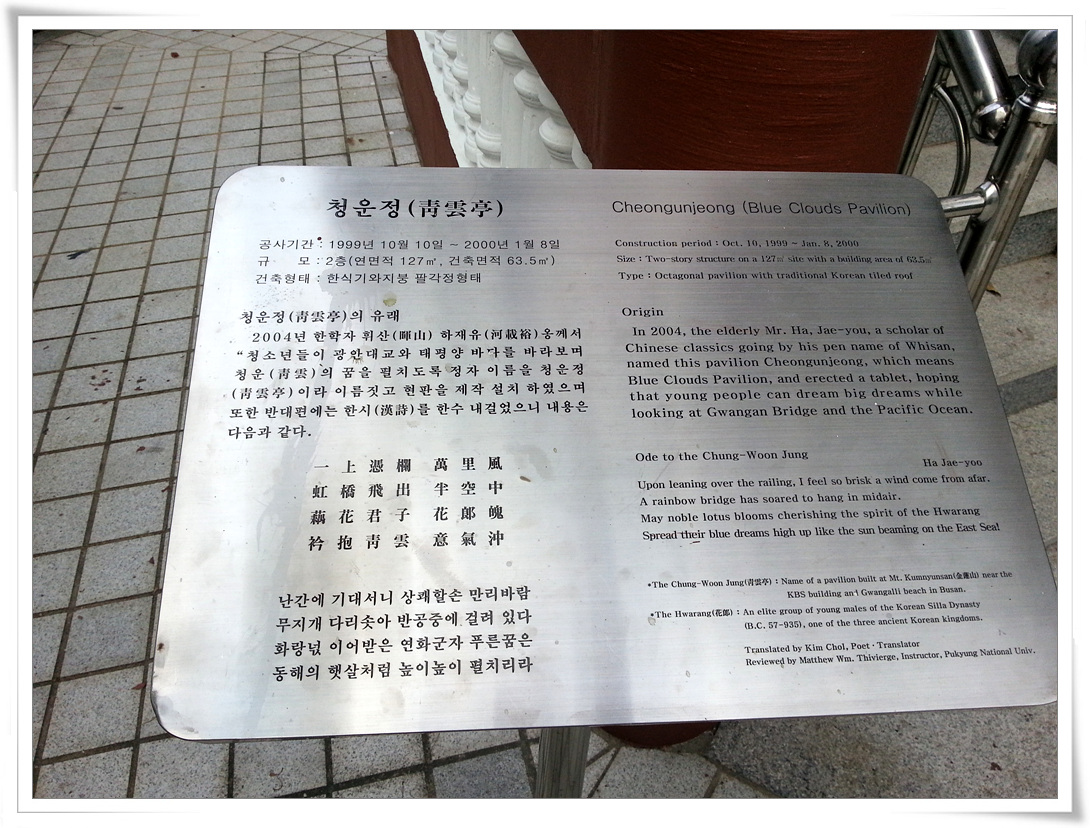 청운정(靑雲亭)
공사기간 : 1999년 10월 10일 ~ 2000년 1월 8일
규 모 : 2층(연면적 127㎡, 건축면적 63.5㎡)
건축형태 : 한식기와지붕 팔각정형태
청운정(靑雲亭)의 유래
2004년 한학자 휘산(暉山) 하재유(河載裕)옹께서
"청소년들이 광안대교와 태평양 바다를 바라보며
청운(靑雲)의 꿈을 펼치도록 정자 이름을 청운정
(靑雲亭)이라 이름짓고 현판을 제작 설치 하였으며
또한 반대편에는 한시(漢詩)를 한수 내걸었으니 내용은
다음과 같다.
一上憑欄 萬里風
虹橋飛出 半空中
藕花君子 花郞魄
衿抱靑雲 意氣沖
난간에 기대서니 상쾌할손 만리바람
무지개 다리솟아 반공중에 걸려 있다
화랑넋 이어받은 연화군자 푸른꿈은
동해의 햇살처럼 높이높이 펼치리라
Cheongunjeong (Blue Clouds Pavilion)
Construction period : Oct. 10, 1999 ~ Jan. 8, 2000
Size : Two-story structure on a 127㎡ site with a building area of 63.5㎡
Type : Octagonal pavilion with traditional Korean tiled roof
Origin
In 2004, the elderly Mr. Ha, Jae-you, a scholar of
Chinese classics going by his pen name of Whisan,
named this pavilion Cheongunjeong, which means
Blue Clouds Pavilion, and erected a tablet, hoping
that young people can dream big dreams while
looking at Gwangan Bridge and the Pacific Ocean.
Ode to the Chung-Woon Jung
Ha Jae-yoo
Upon leaning over the railing, I feel so brisk a wind come from afar.
A rainbow bridge has soared to hang in midair.
May noble lotus blooms cherishing the spirit of the Hwarang
Spread their blue dreams high up like the sun beaming on the East Sea!
*The Chung-Woon Jung(靑雲亭) : Name of a pavilion built at Mt. Kumnyunsan(金蓮山) near the
KBS building and Gwangalli beach in Busan.
*The Hwarang(花郞) : An elite group of young males of the Korean Silla Dynasty
(B.C. 57-935), one of the three ancient Korean kingdoms.
Translated by Kim Chol, Poet · Translator
Reviewed by Matthew Wm. Thivierge, Instructor, Pukyung National Univ.